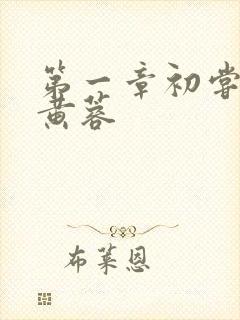 第一章初尝
黄蓉
布莱恩